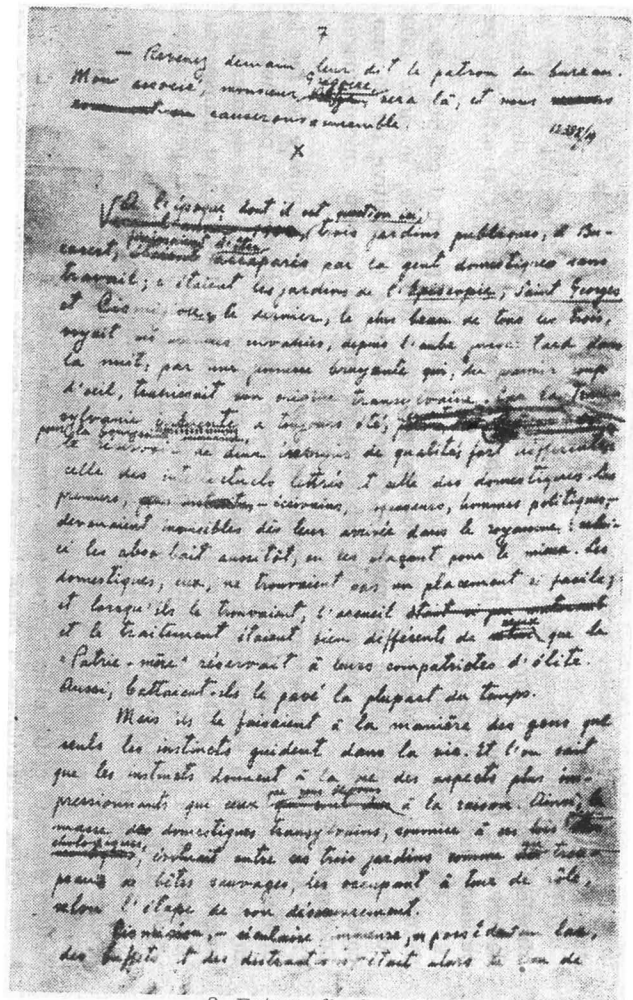 7
— Revenez demain, leur dit le patron du bureau.
Grégoire,
Mon associé, monsieur sera là, et nous
causerons ensemble.
X
A l'époque dont il est question ici,
trois jardins publiques, à Bu-
carest, accaparés par la gent domestiques sans
travail; c'étaient les jardins de l'Episcopie, Saint Georges
et Cismigiou, le dernier, le plus beau de tous les trois,
voyait ses envahies, depuis l'aube jusqu'à tard dans
la nuit, par une jeunesse bruyante qui, du premier coup
d'œil, trahissait son origine transylvaine. Car la Tran-
sylvanie a toujours été,
pour la
le réservoir de deux de qualités fort différentes
celle des intellectuels lettrés et celle des domestiques. Les
premiers, écrivains, penseurs, hommes politiques,
devenaient invisibles dès leur arrivée dans le royaume: celui-
ci les absorbait aussitôt, en les plaçant pour le mieux. Les
domestiques, eux, ne trouvaient pas un placement si facile;
et lorsqu'ils le trouvaient, l'accueil
ceux
et le traitement étaient bien différents de que la
"Patrie-mère" réservait à leurs compatriotes d'élite.
Aussi, battaient-ils le pavé la plupart du temps.
Mais ils le faisaient à la manière des gens que
seuls les instincts guident dans la vie. Et l'on sait
que les instincts donnent à la vie des aspects plus im-
que nous devons
pressionnants que ceux à la raison. Ainsi, la
masse des domestiques transylvains, soumise à ses lois
évoluait entre ses trois jardins comme
peaux de bêtes sauvages, les occupant à tour de rôle,
selon l'étape de son désœuvrement.
Cismigiou, séculaire, immense, possédant un lac,
des buffets et des distractions, était alors le lieu de